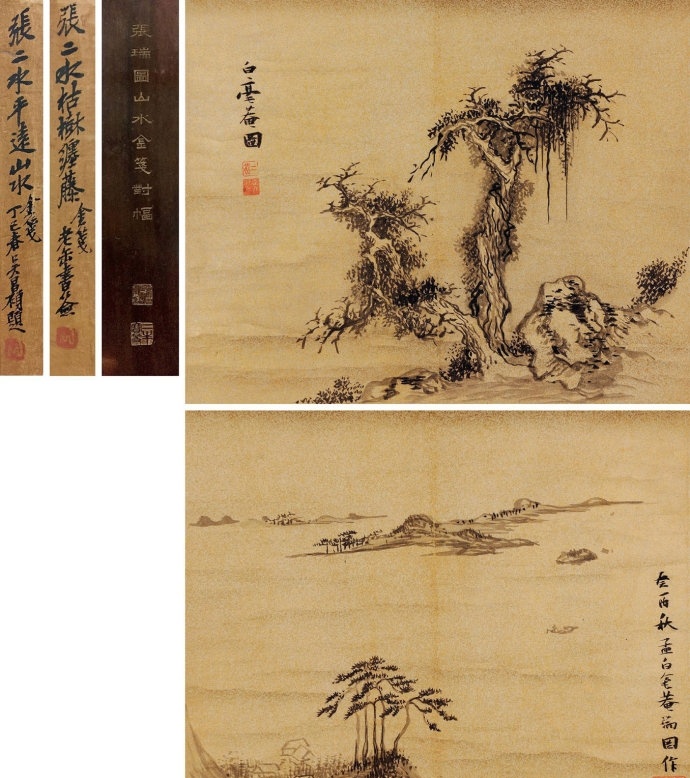 張二水平遠山水
金箋
丁巳春吳昌碩題
張二水枯樹纏藤
金箋
老缶書簽
張瑞圖山水金箋對幅
白毫菴圖
癸酉秋孟白毫菴瑞圖作